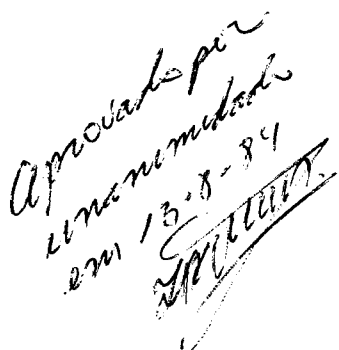 Aprovado por
unanimidade
em 13-8-84